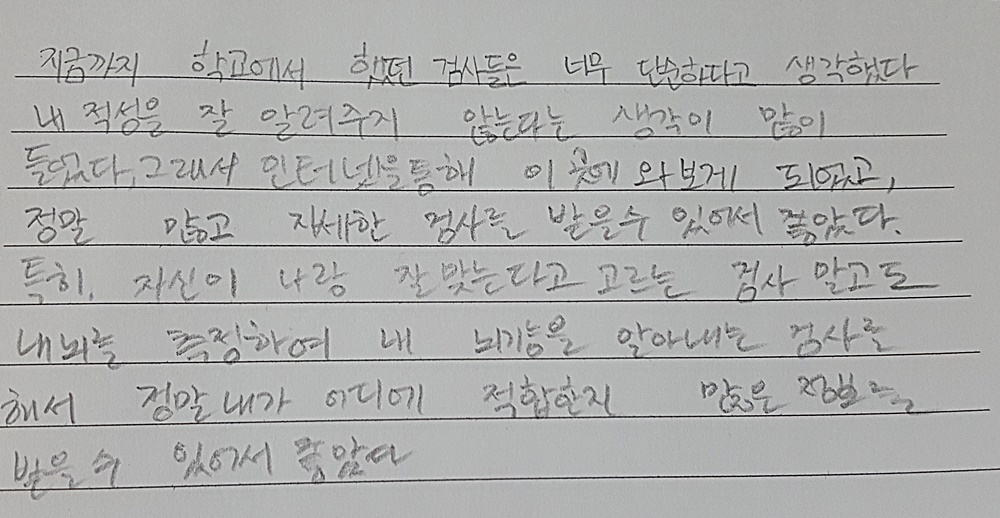 지금까지 학교에서 했던 검사들은 너무 단순하다고 생각했다
내 적성을 잘 알려주지 않는다는 생각이 많이
들었다, 그래서 인터넷을 통해 이 곳에 와보게 되었고,
정말 많고 자세한 검사를 받을수 있어서 좋았다.
특히, 자신이 나랑 잘맞는다고 고르는 검사 말고도
내뇌를 측정하여 내 뇌기능을 알아내는 검사를
해서 정말내가 어디에 적합한지 많은 정보를
받을 수 있어서 좋았다